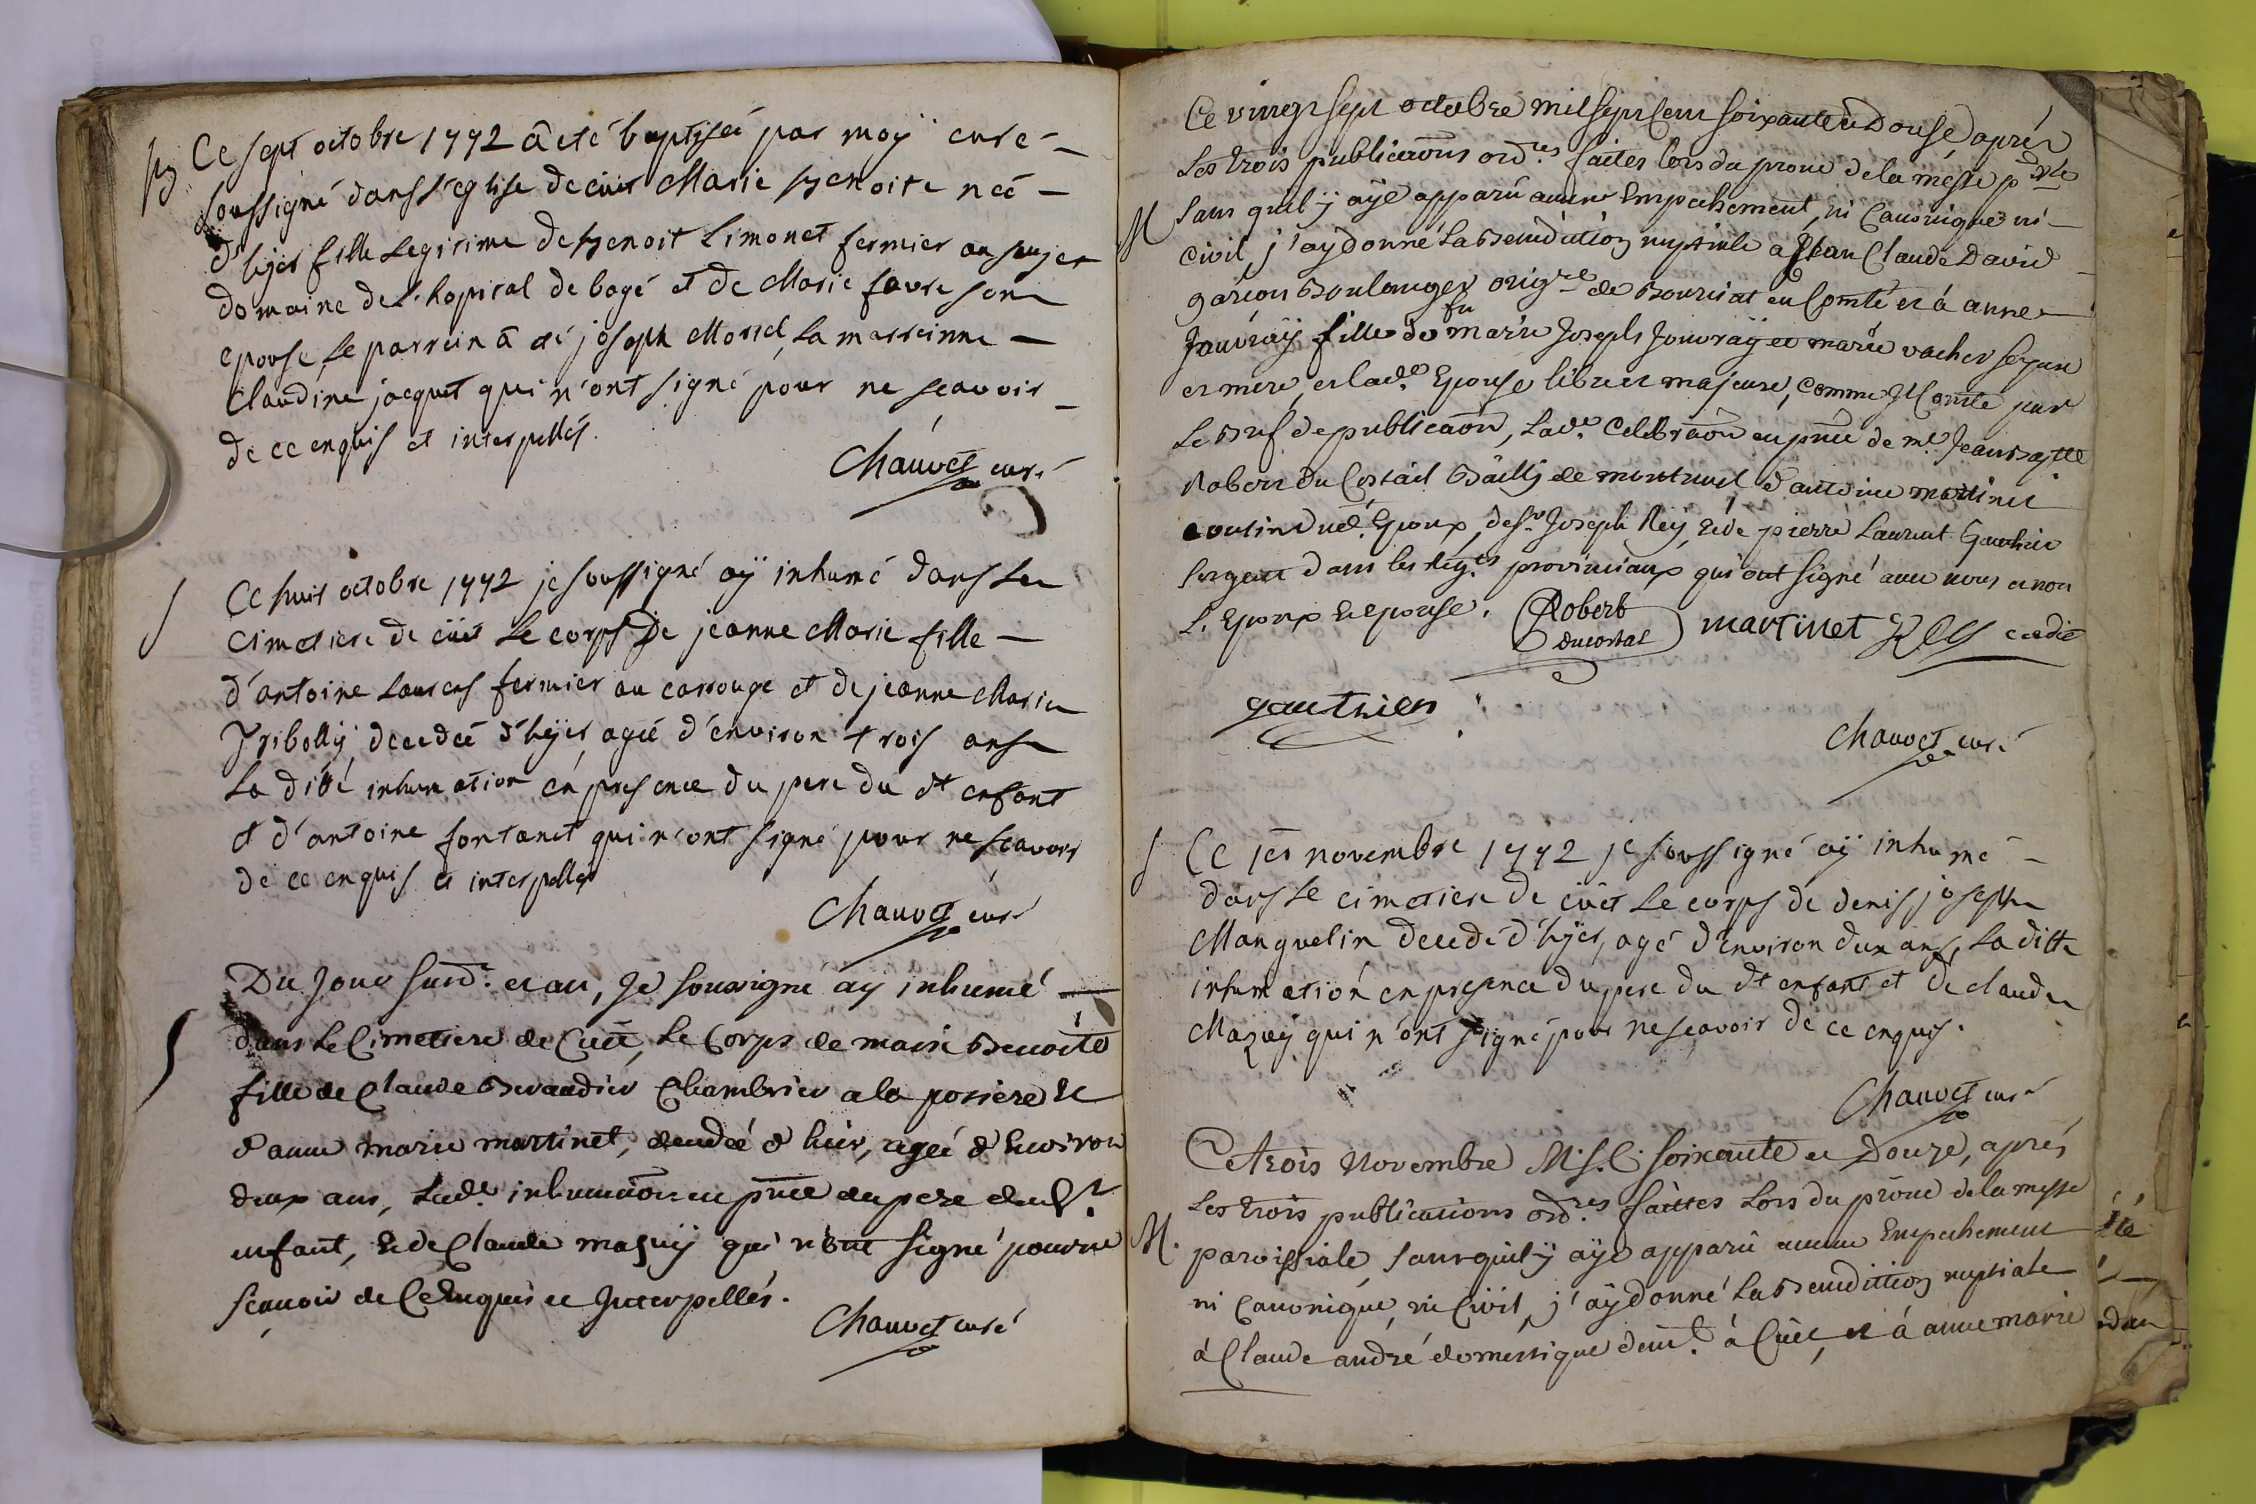 B Ce sept octobre 1772 a eté baptiseé par moÿ curé
soussigné dans l'eglise de cuet Marie Benoite neé
d'hÿer fille Legitime de Benoit Limonet fermier au
domaine de L'hopital de bagé et de Marie favre sone
epouse, Le parrein a eté joseph Morel, La marreinne
Claudine jacquet qui n'ont signé pour ne sçavoir
de ce enquis et interpellés.
Chauvet curé
S Ce huit octobre 1772 je soussigné aÿ inhumé dans Le
cimetiere de cuet Le corps de jeanne Marie fille
d'antoine Laurens fermier au carrouge et de jeanne Marie
Tribollÿ decedeé d'hÿer, ageé d'environ trois ans
La ditte inhumation en presence du pere du dt enfant
et d'antoine fontanet qui n'ont signé pour ne scavoir
de ce enquis et interpellés
Chauvet curé
S Du Jour susd. et an, Je soussigné ay inhumé
dans Le Cimetiere de Cuet, Le Corps de marie Benoite
fille de Claude Beraudier Chambrier a la
d'anne marie martinet, decedeé d'hier, ageé d'Environ
deux ans, Lade. inhumaon en pnce du pere dud.t
enfant, et de Claude mazuÿ qui n'ont signé pour ne
scavoir de Ce Enquis et Interpellés.
Chauvet curé
Ce vingt sept octobre mil sept Cent soixante et Douse, aprés
Les trois publicaons ord.res faites lors du prone de la messe p.slle
M sans quil ÿ aÿe apparu aucun Empechement, ni Canonique ni
civil, j'aÿ donné La Benediction nuptiale a Jean Claude David
garçon Boulanger orig.re de en Comté et à anne
Jouvraÿ fille de fu Joseph Jouvraÿ et marie vacher ses pere
et mere, et lad.e Epouse libre et majeure, Comme Il Conste par
Le Bref de publicaon, Lad.e Celebraon en pnce de m.e Jean Bap.tte
Robert du Costal Bailly de montrevel d'antoine martinet
cousin dud. Epoux, de s.r Joseph Reÿ, et de pierre Laurent Gauthier
sergent dans les reg.ts provinciaux qui ont signé avec nous et non
L'Epoux et epouse. Robert
Ducostal martinet Reÿ
gauthier
Chauvet curé
S Ce 1er novembre 1772 je soussigné aÿ inhumé
dans Le cimetiere de cuet Le corps de denis joseph
Manguelin decedé d'hÿer, agé d'environ deux ans, La ditte
inhumation en presence du pere du dt enfant et de claude
Mazuÿ qui n'ont signé pour ne scavoir de ce enquis.
Chauvet curé
Ce trois Novembre M.S.C. soixante et Douze, aprés
Les trois publications ord.res faittes Lors du prone de la messe
M. paroissiale, sans quil ÿ aÿe apparu aucun Empechement
ni Canonique, ni Civil, j'aÿ donné La Benediction nuptiale
à Claude andré domestique dem.t à Cuet, et à anne marie